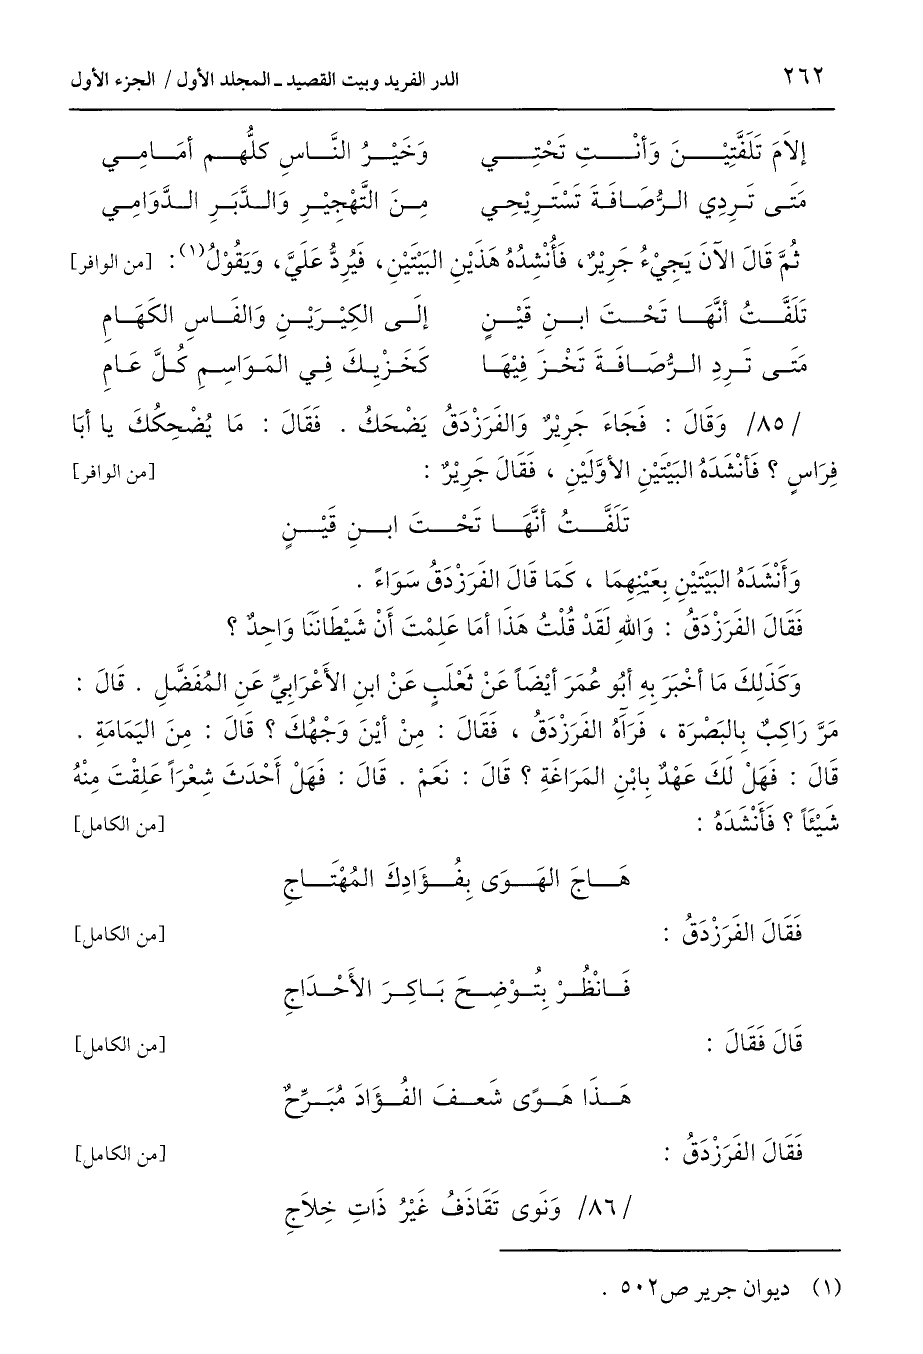 ٢٦٢ الدر الفريد وبيت القصيد ـ المجلد الأول / الجزء الأول
إِلاَمَ تَلَفَّتِيْنَ وَأَنْتِ تَحْتِي وَخَيْرُ النَّاسِ كلُّهم أمَامِي
مَتَى تَرِدِي الرُّصَافَةَ تَسْتَرِيْحِي مِنَ التَّهْجِيْرِ وَالدَّبَرِ الدَّوَامِي
ثُمَّ قَالَ الآنَ يَجِيْءُ جَرِيْرٌ، فَأُنْشِدُهُ هَذَيْنِ البَيْتَيْنِ، فَيُرِدُّ عَلَيَّ، وَيَقُوْلُ(١): [من الوافر]
تَلَفَّتُ أنَّهَا تَحْتَ ابنِ قَيْنٍ إلَى الكِيْرَيْنِ وَالفَاسِ الكَهَامِ
مَتَى تَرِدِ الرُّصَافَةَ تَخْزَ فِيْهَا كَخَزْيِكَ فِي المَوَاسِمِ كُلَّ عَامِ
/٨٥/ وَقَالَ : فَجَاءَ جَرِيْرٌ وَالفَرَزْدَقُ يَضْحَكُ . فَقَالَ : مَا يُضْحِكُكَ يا أبَا
فِرَاسٍ ؟ فَأنْشَدَهُ البَيْتَيْنِ الأوَّلَيْنِ ، فَقَالَ جَرِيْرٌ : [من الوافر]
تَلَفَّتُ أنَّهَا تَحْتَ ابنِ قَيْنٍ
وَأَنْشَدَهُ البَيْتَيْنِ بِعَيْنِهِمَا ، كَمَا قَالَ الفَرَزْدَقُ سَوَاءً .
فَقَالَ الفَرَزْدَقُ : وَاللهِ لَقَدْ قُلْتُ هَذَا أمَا عَلِمْتَ أَنْ شَيْطَانَنَا وَاحِدٌ ؟
وَكَذَلِكَ مَا أخْبَرَ بِهِ أبُو عُمَرَ أيْضَاً عَنْ ثَعْلَبٍ عَنْ ابنِ الأعْرَابِيِّ عَنِ المُفَضَّلِ . قَالَ :
مَرَّ رَاكِبٌ بِالبَصْرَة ، فَرَآهُ الفَرَزْدَقُ ، فَقَالَ : مِنْ أيْنَ وَجْهُكَ ؟ قَالَ : مِنَ اليَمَامَةِ .
قَالَ : فَهَلْ لَكَ عَهْدٌ بِابْنِ المَرَاغَةِ ؟ قَالَ : نَعَمْ . قَالَ : فَهَلْ أَحْدَثَ شِعْرَاً عَلِقْتَ مِنْهُ
شَيْئَاً ؟ فَأَنْشَدَهُ : [من الكامل]
هَاجَ الهَوَى بِفُؤَادِكَ المُهْتَاجِ
فَقَالَ الفَرَزْدَقُ : [من الكامل]
فَانْظُرْ بِتُوْضِحَ بَاكِرَ الأَحْدَاجِ
قَالَ فَقَالَ : [من الكامل]
هَذَا هَوًى شَعفَ الفُؤَادَ مُبَرِّحٌ
فَقَالَ الفَرَزْدَقُ : [من الكامل]
/٨٦/ وَنَوَى تَقَاذَفُ غَيْرُ ذَاتِ خِلاَجِ
(١) ديوان جرير ص٥٠٢ .